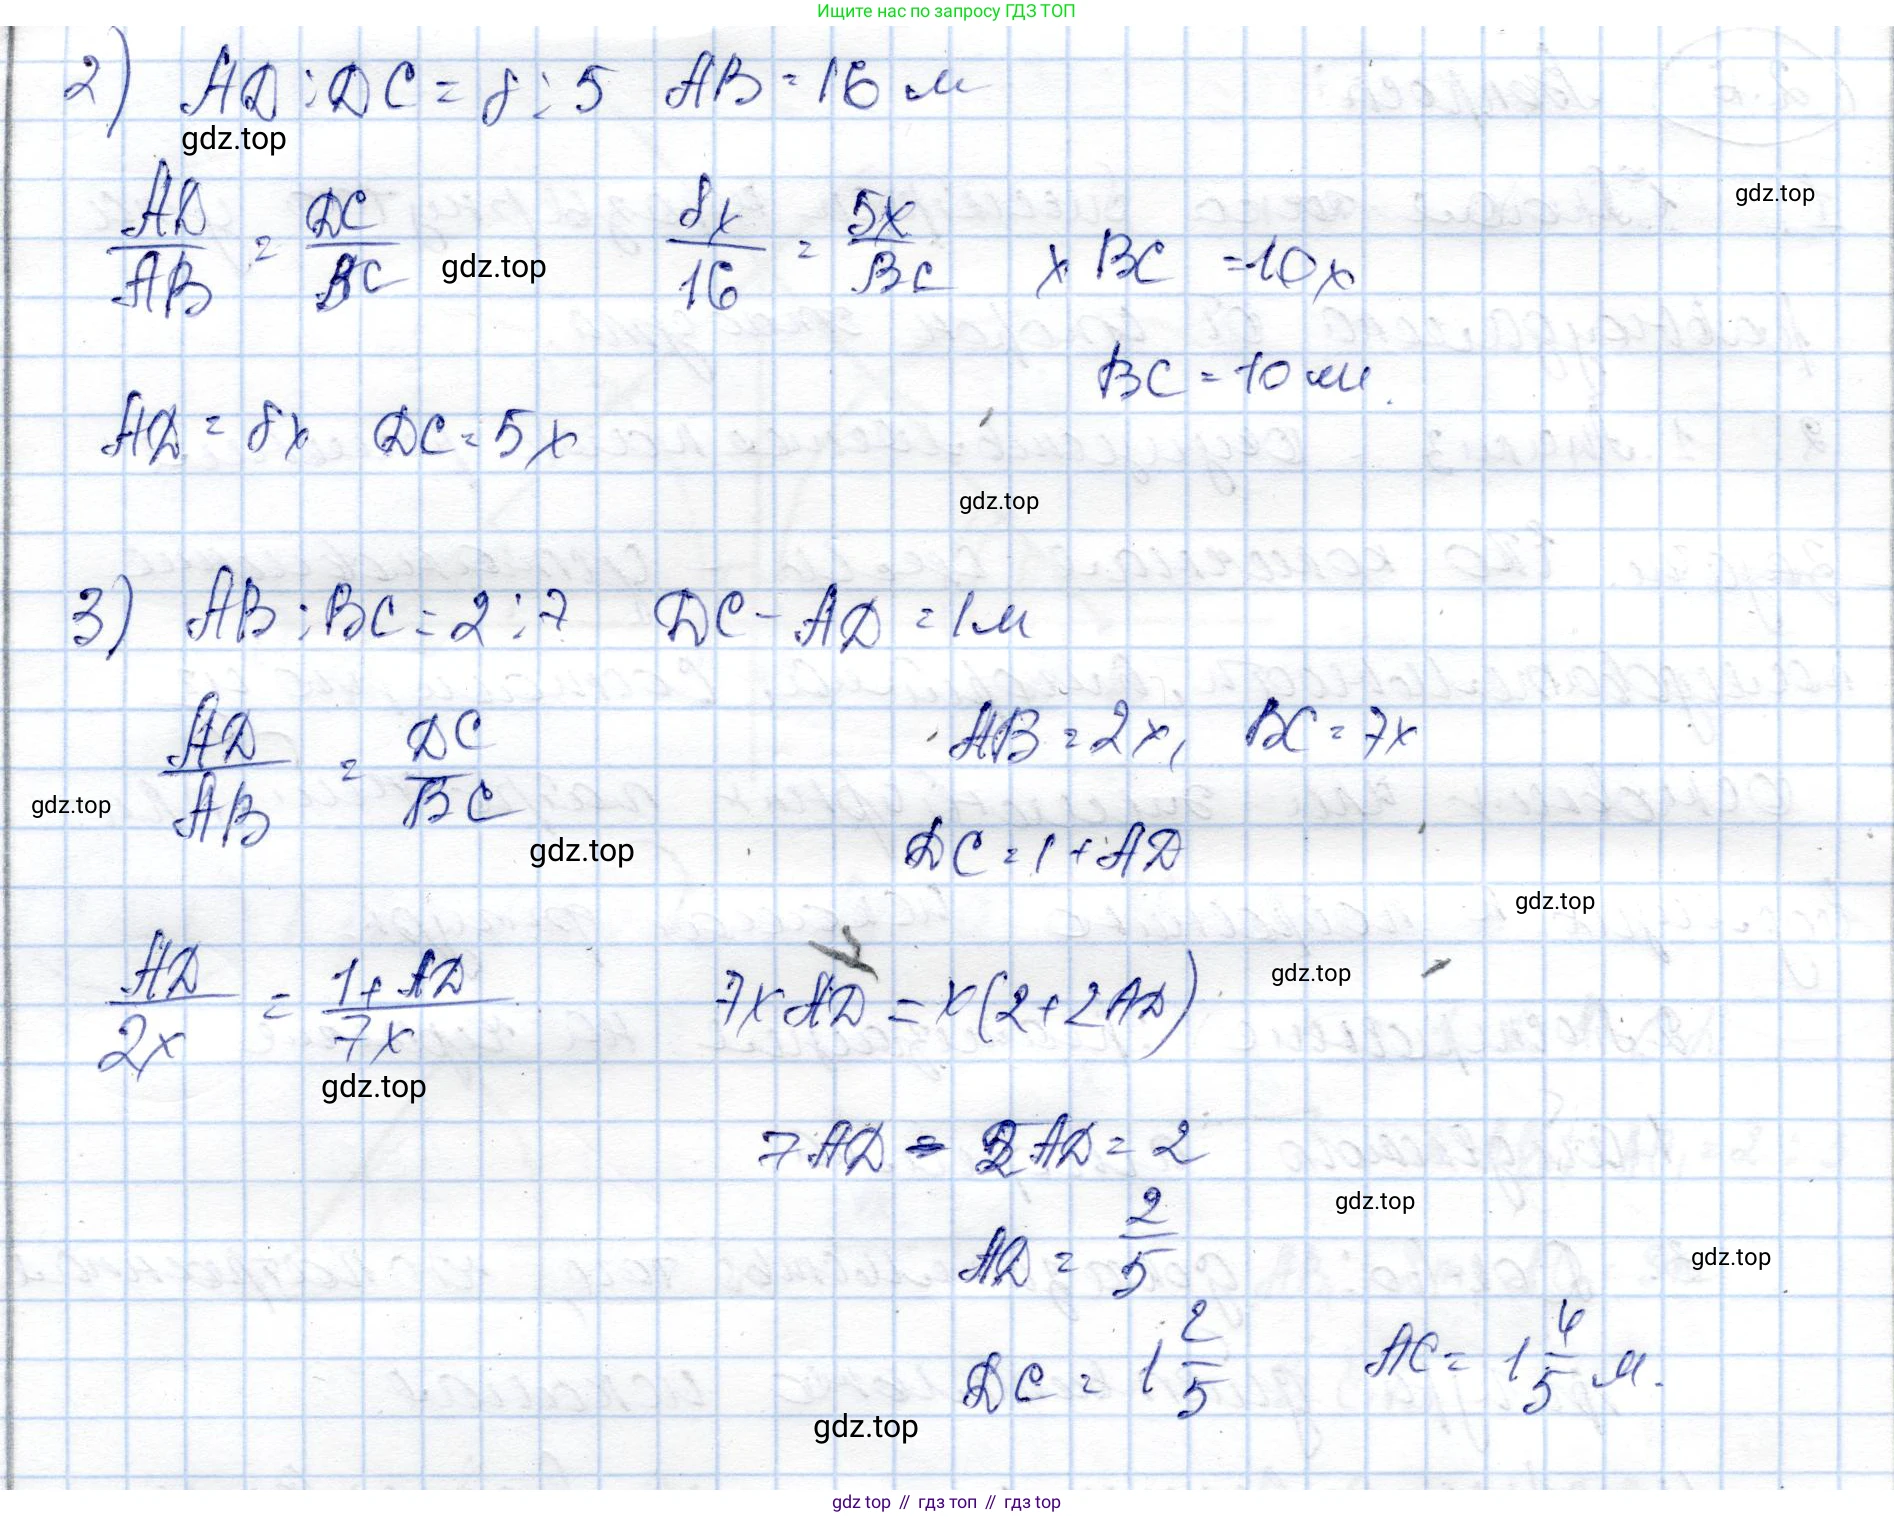 Ищите нас по запросу ГДЗ ТОП
2) AD : DC = 8 : 5 AB = 16 м
gdz.top
gdz.top
AD/AB = DC/BC 8x/16 = 5x/BC x BC = 10x
gdz.top
BC = 10 м.
AD = 8x DC = 5x
gdz.top
3) AB : BC = 2 : 7 DC - AD = 1 м
AD/AB = DC/BC AB = 2x, BC = 7x
gdz.top
gdz.top
DC = 1 + AD
gdz.top
gdz.top
AD/2x = 1 + AD/7x 7x AD = x(2 + 2AD)
gdz.top
7AD - 2AD = 2
gdz.top
AD = 2/5
gdz.top
DC = 1 2/5 AC = 1 4/5 м.
gdz.top
gdz top // гдз топ // гдз top